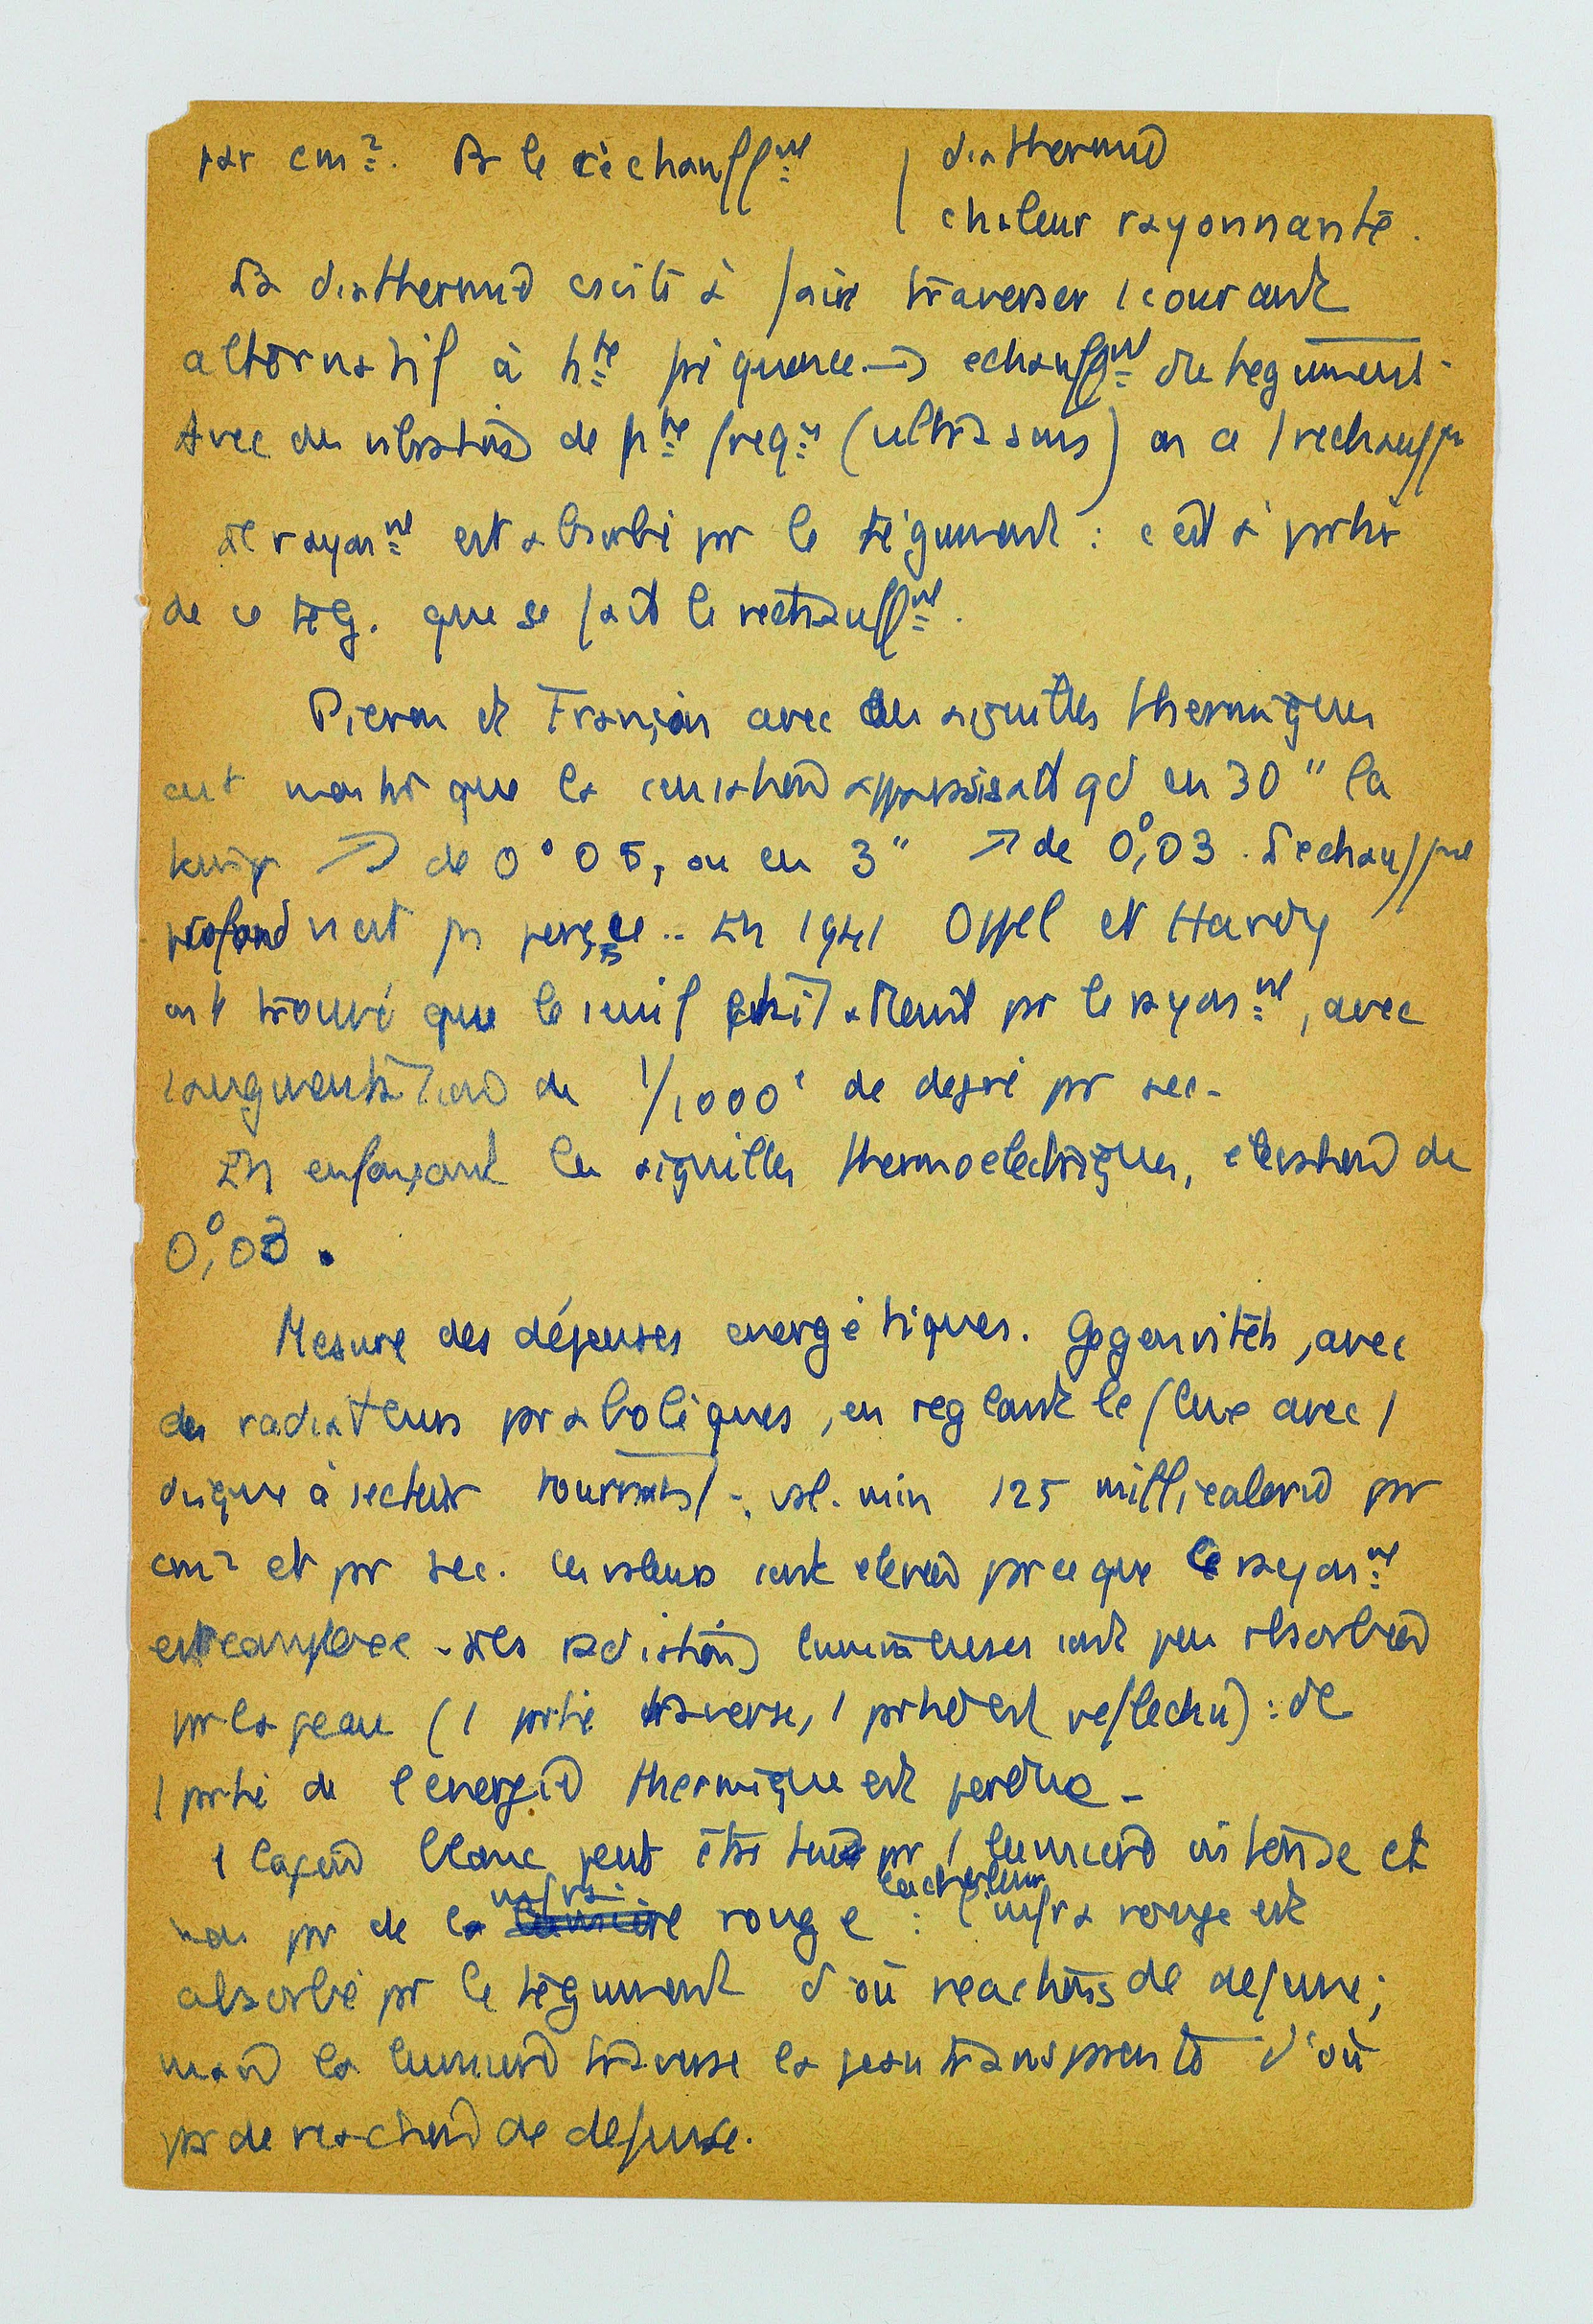 par cm². Ds le réchauff<sup>nt</sup> | diathermie
| chaleur rayonnante.
La diathermie csiste à faire traverser 1 courant
alternatif à h<sup>te</sup> fréquence → echauff<sup>nt</sup> du tegument.
Avec des vibrations de h<sup>te</sup> freq<sup>ce</sup> (ultrasons) on a 1 rechauff<sup>t</sup>
le rayon<sup>nt</sup> est absorbé pr le tégument : c'est à partir
de ce tég. que se fait le rechauff<sup>nt</sup>.
Pieron et François avec des aiguilles thermiques
ont montré que la sensation apparaissait qd en 30" la
temp ↗ de 0°05, ou en 3" ↗ de 0°,03. L'echauff<sup>nt</sup>
profond n'est ps perçu .. En 1941 Oppel et Hardy
ont trouvé que le seuil était atteint pr le rayon<sup>nt</sup>, avec
1 augmentation de 1/1000<sup>e</sup> de degré pr sec.
En enfonçant les aiguilles thermoelectriques, élévation de
0°,03.
Mesure des dépenses energétiques. avec
des radiateurs paraboliques, en reglant le flux avec 1
disque à secteur tournant; val. min 125 millicalorie par
cm² et pr sec. Ces valeurs sont elevées parce que le rayon<sup>nt</sup>
est complexe - les radiations lumineuses sont peu absorbées
par la peau (1 partie traverse, 1 partie est reflechie) : dc
1 partie de l'energie thermique est perdue -
1 lapin blanc peut être tué pr 1 lumière intense et
non pr de la infra- rouge : la chaleur l'infra rouge est
absorbé pr le tégument d'où reactions de defense;
mais la lumière traverse la peau transparente d'où
pas de reaction de defense.